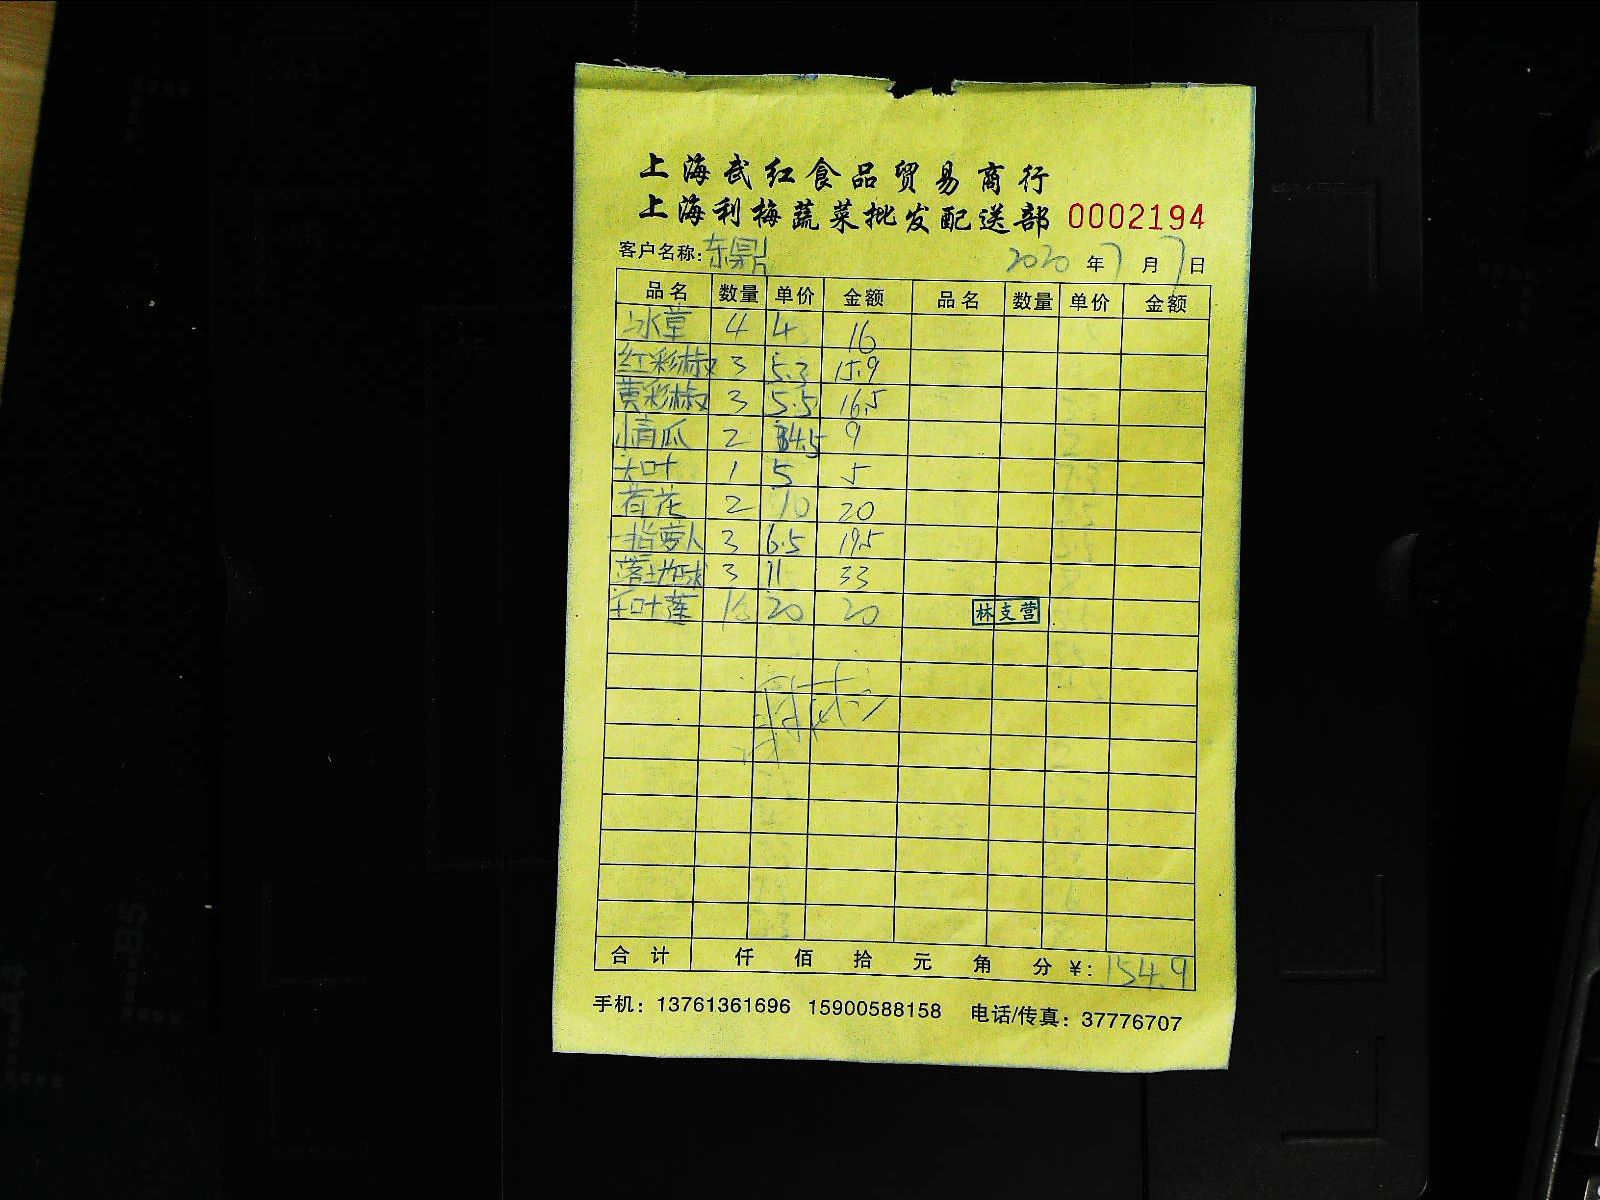 上海武红食品贸易商行
上海利梅蔬菜批发配送部 0002194
客户名称: 东鼎 2020 年 7 月 7 日
品名 数量 单价 金额 品名 数量 单价 金额
冰草 4 4 16
红彩椒 3 5.3 15.9
黄彩椒 3 5.5 16.5
情瓜 2 4.5 9
大叶 1 5 5
荷花 2 10 20
手指萝卜 3 6.5 19.5
落地球 3 11 33
千叶莲 1盒 20 20
林支营
合计 仟 佰 拾 元 角 分 ¥: 154.9
手机: 13761361696 15900588158 电话/传真: 37776707